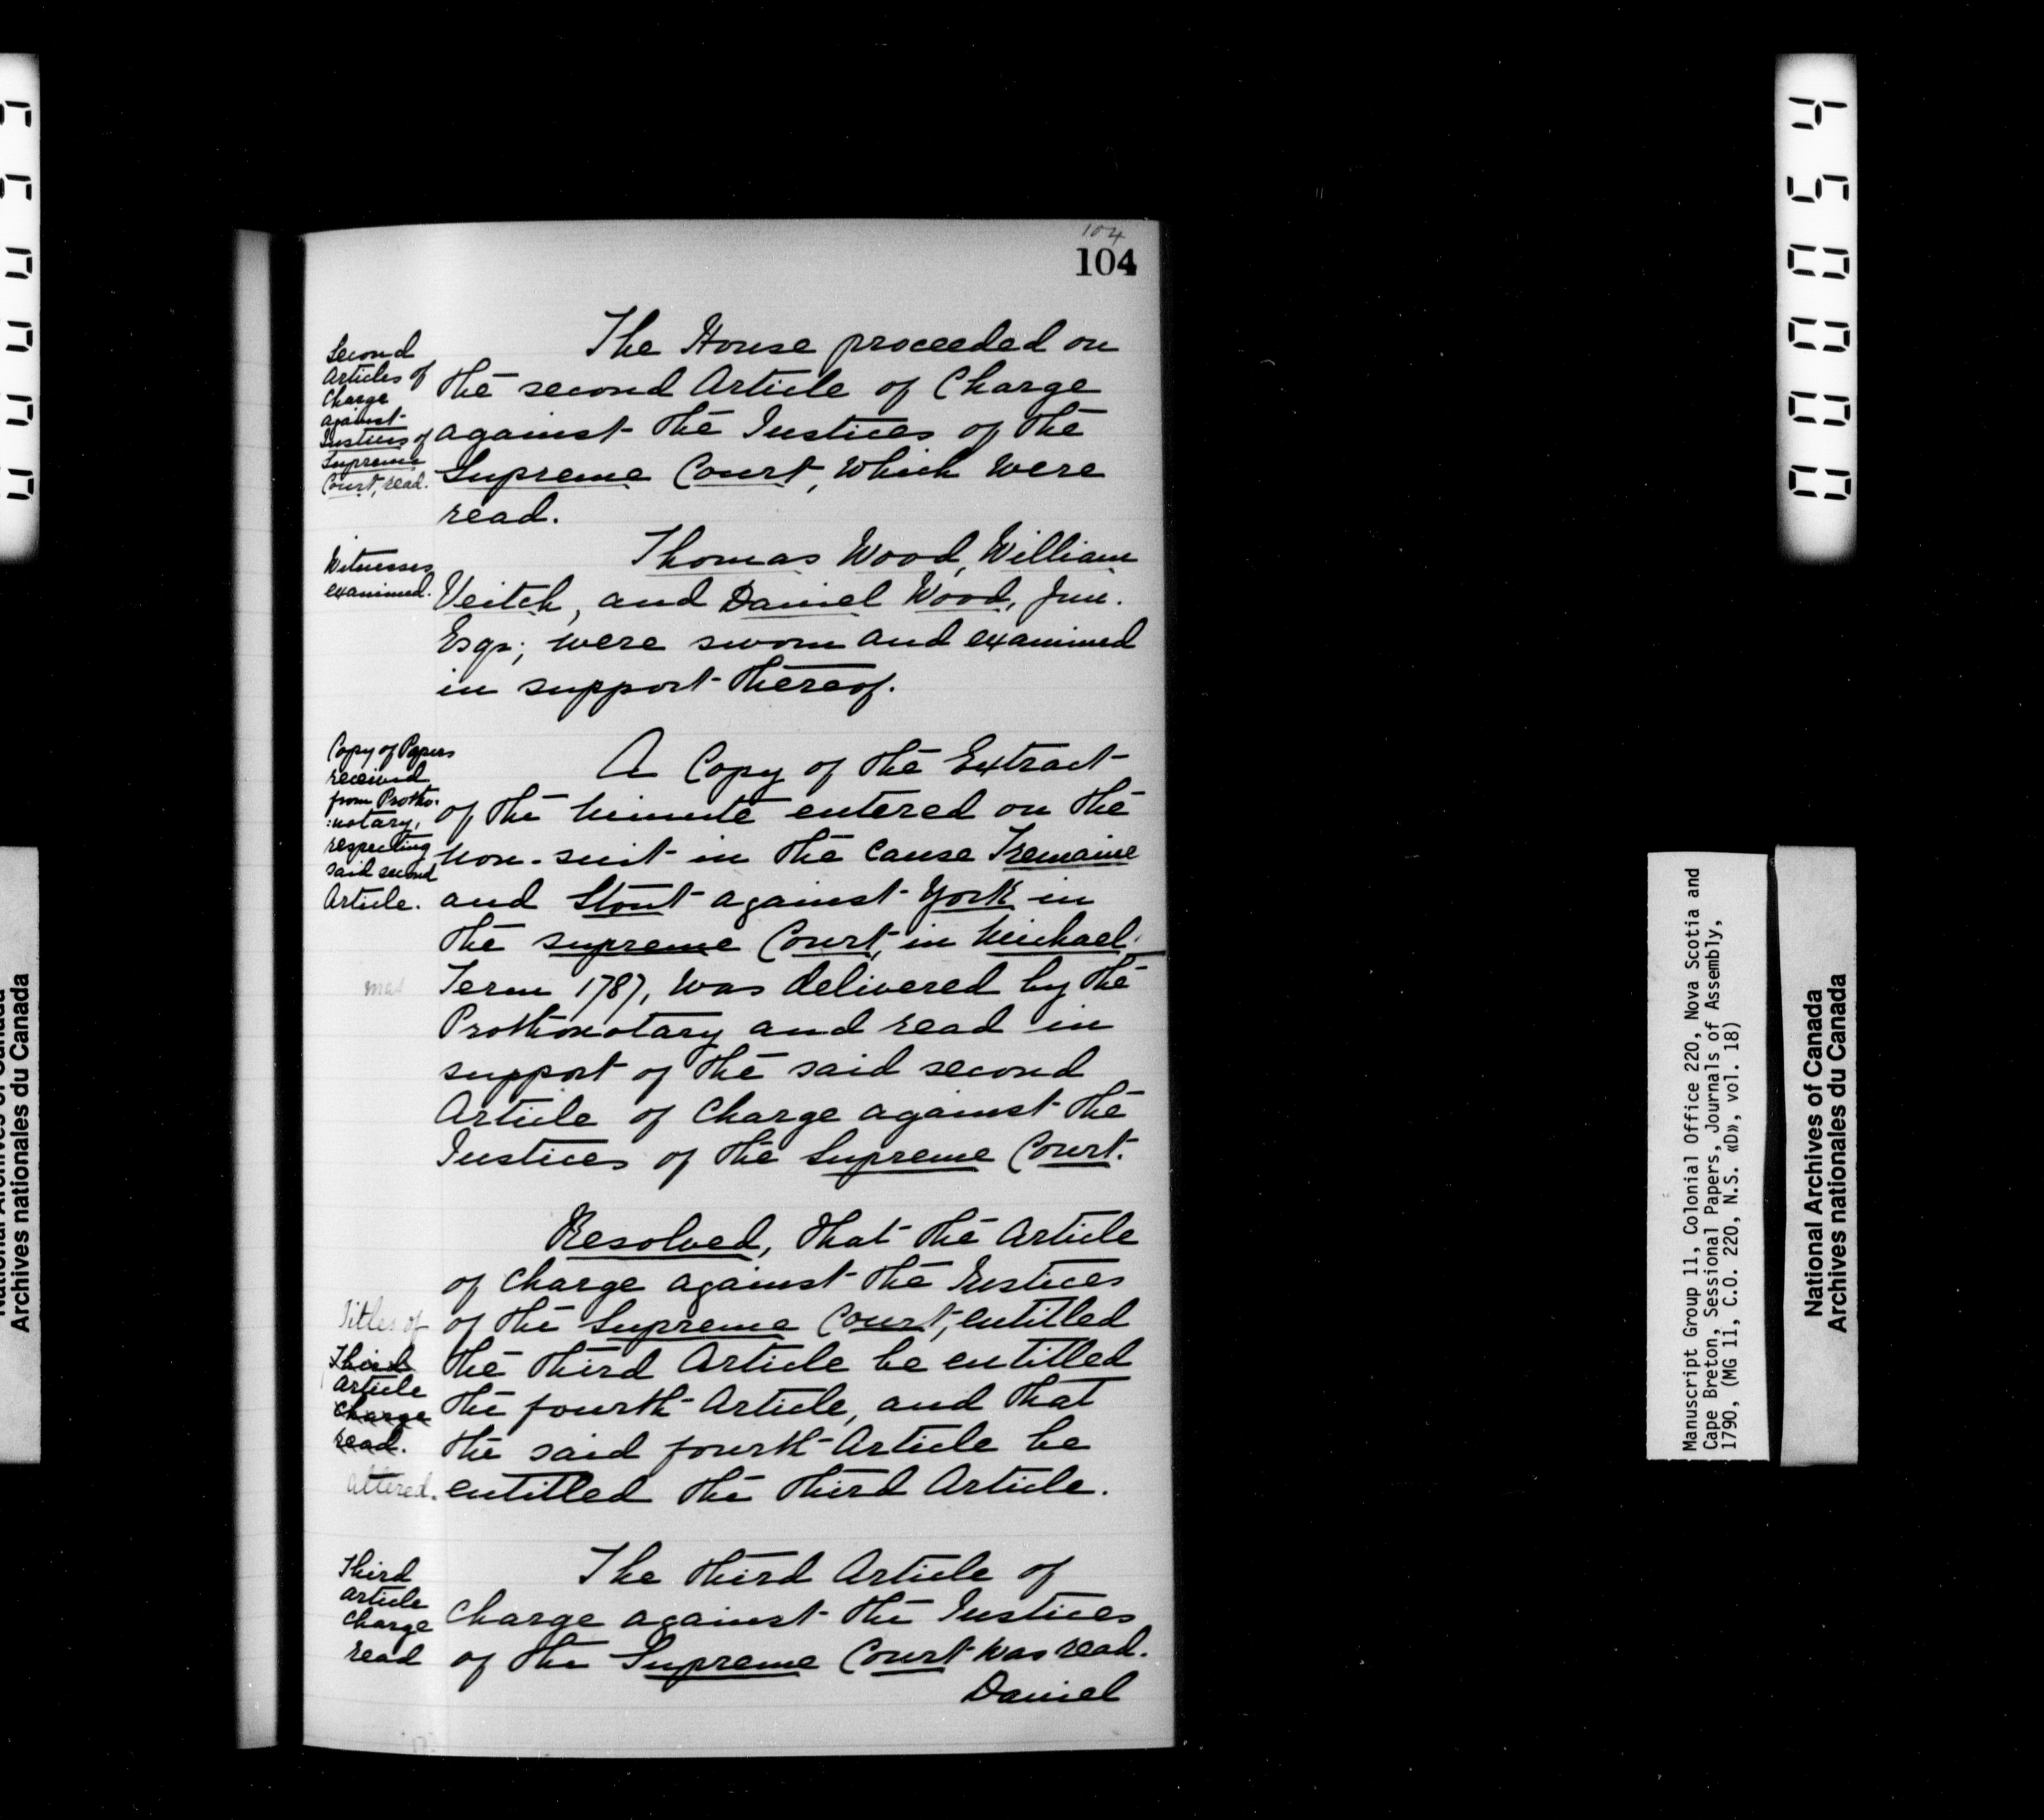 104
104
Second
Articles of
Charge
against
Justices of
Supreme
Court, read.
The House proceeded on
the second Article of Charge
against the Justices of the
Supreme Court, which were
read.
Witnesses
examined.
Thomas Wood, William
Veitch, and Daniel Wood, Jun.
Esqs; were sworn and examined
in support thereof.
Copy of Papers
received
from Protho-
:notary,
respecting
said second
Article.
A Copy of the Extract
of the Minute entered on the
Non-suit in the cause Tremaine
and Stout against York in
the supreme Court, in Michael-
mas
Term 1787, was delivered by the
Prothonotary and read in
support of the said second
Article of Charge against the
Justices of the Supreme Court.
Resolved, that the Article
of Charge against the Justices
of the Supreme Court, entitled
the third Article be entitled
the fourth Article, and that
the said fourth Article be
entitled the third Article.
Titles of
Third
Article
Charge
read.
altered.
Third
article
Charge
read
The third Article of
Charge against the Justices
of the Supreme Court was read.
Daniel
450000
Manuscript Group 11, Colonial Office 220, Nova Scotia and
Cape Breton, Sessional Papers, Journals of Assembly,
1790, (MG 11, C.O. 220, N.S. «D», vol. 18)
National Archives of Canada
Archives nationales du Canada
National Archives of Canada
Archives nationales du Canada